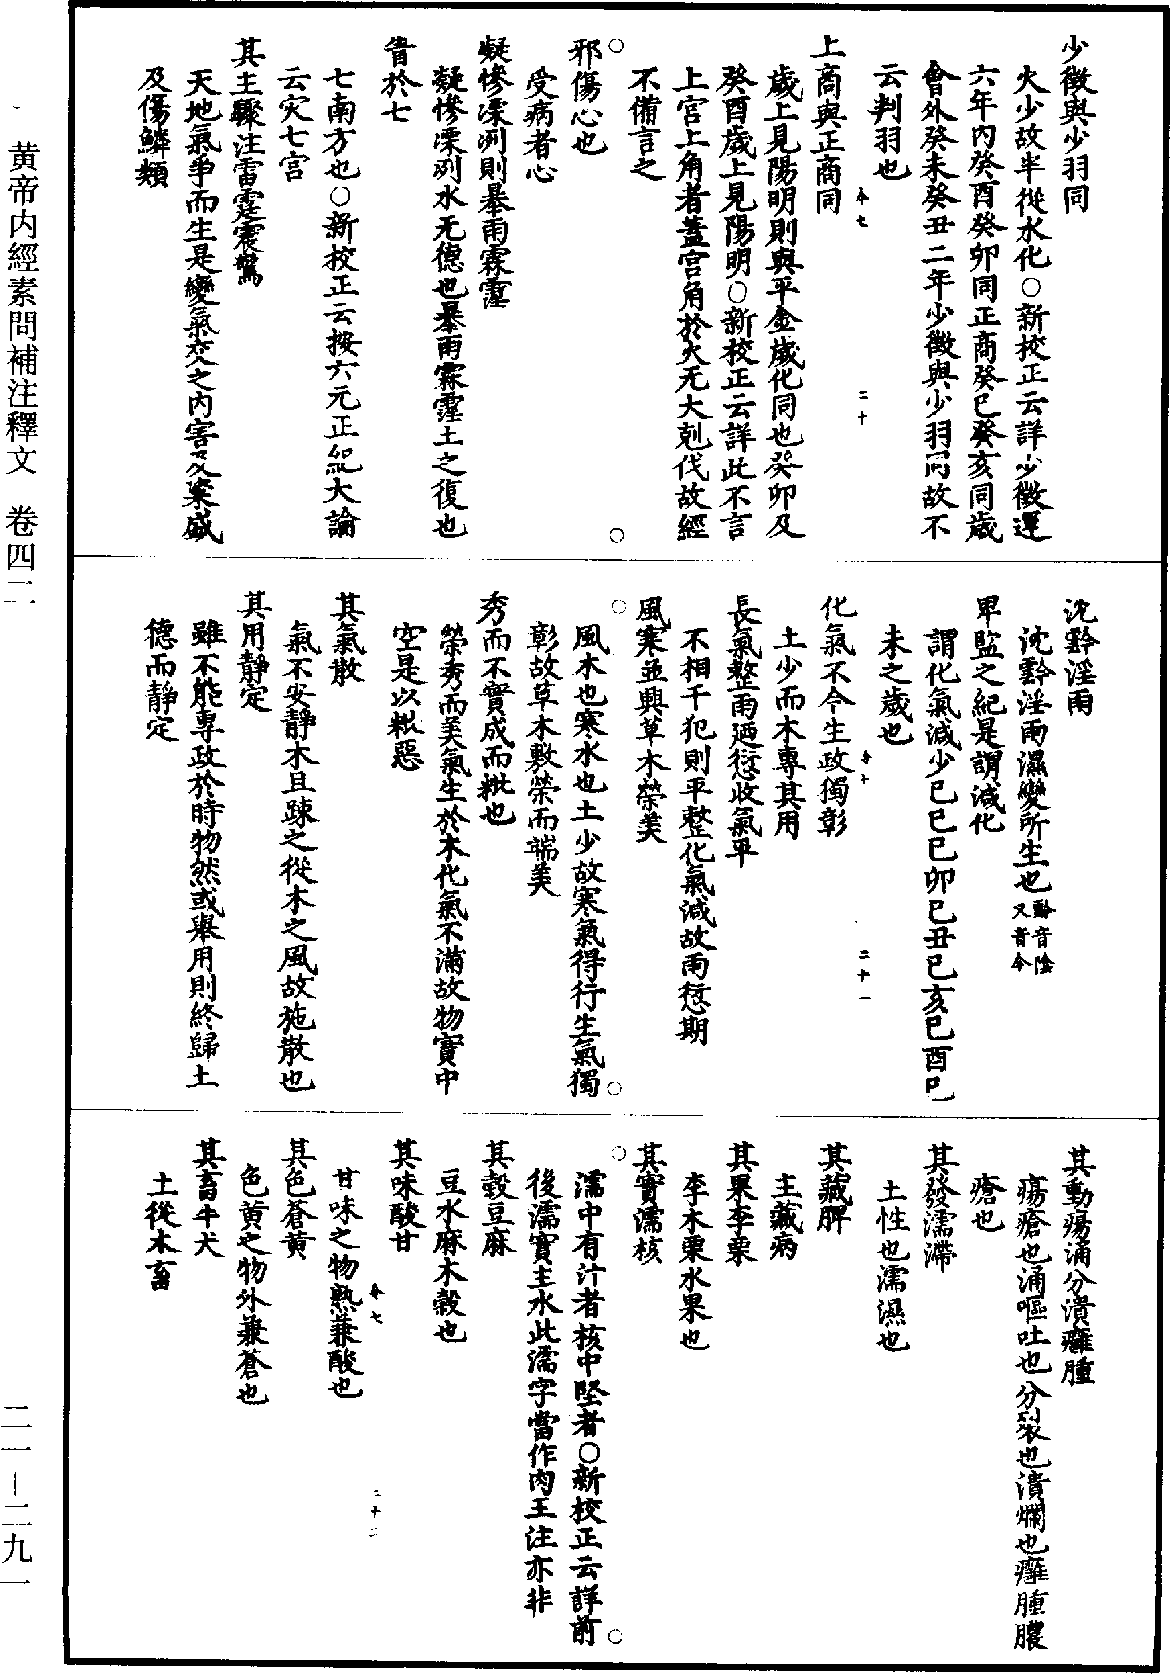 少徵與少羽同
火少故半從水化〇新校正云詳少徵運
六年內癸酉癸卯同正商癸巳癸亥同歲
會外癸未癸丑二年少徵與少羽同故不
云判羽也
上商與正商同
歲上見陽明則與平金歲化同也癸卯及
癸酉歲上見陽明〇新校正云詳此不言
上宮上角者蓋宮角於火无大剋伐故經
不備言之
邪傷心也
受病者心
凝慘凓冽則暴雨霖霪
凝慘凓冽水无德也暴雨霖霪土之復也
眚於七
七南方也〇新校正云按六元正紀大論
云灾七宮
其主驟注雷霆震驚
天地氣爭而生是變氣交之內害及粢盛
及傷鱗類
沈黔淫雨
沈黔淫雨濕變所生也黔音陰又音今
卑監之紀是謂減化
謂化氣減少己巳己卯己丑己亥己酉己
未之歲也
化氣不令生政獨彰
土少而木專其用
長氣整雨迺愆收氣平
不相干犯則平整化氣減故雨愆期
風寒並興草木榮美
風木也寒水也土少故寒氣得行生氣獨
彰故草木敷榮而端美
秀而不實成而粃也
榮秀而美氣生於木化氣不滿故物實中
空是以粃惡
其氣散
氣不安靜木且踈之從木之風故施散也
其用靜定
雖不能專政於時物然或舉用則終歸土
德而靜定
其動瘍涌分潰癰腫
瘍瘡也涌嘔吐也分裂也潰爛也癰腫膿
瘡也
其發濡滯
土性也濡濕也
其藏脾
主藏病
其果李栗
李木栗水果也
其實濡核
濡中有汁者核中堅者〇新校正云詳前
後濡實主水此濡字當作肉王注亦非
其穀豆麻
豆水麻木穀也
其味酸甘
甘味之物熟兼酸也
其色蒼黃
色黃之物外兼蒼也
其畜牛犬
土從木畜
黃帝內經素問補注釋文 卷四二
二一—二九一